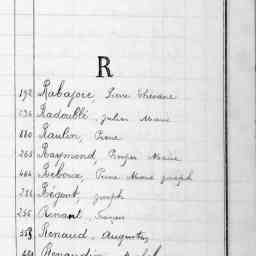 R
192 Rabajoie, Pierre Etienne
236 Radoublé, Julien Marie
880 Raulin, Pierre
265 Raymond, Prosper Marie
464 Reboux, Pierre Marie Joseph
286 Régent, Joseph
256 Renant,
553 Renaud, Augustin